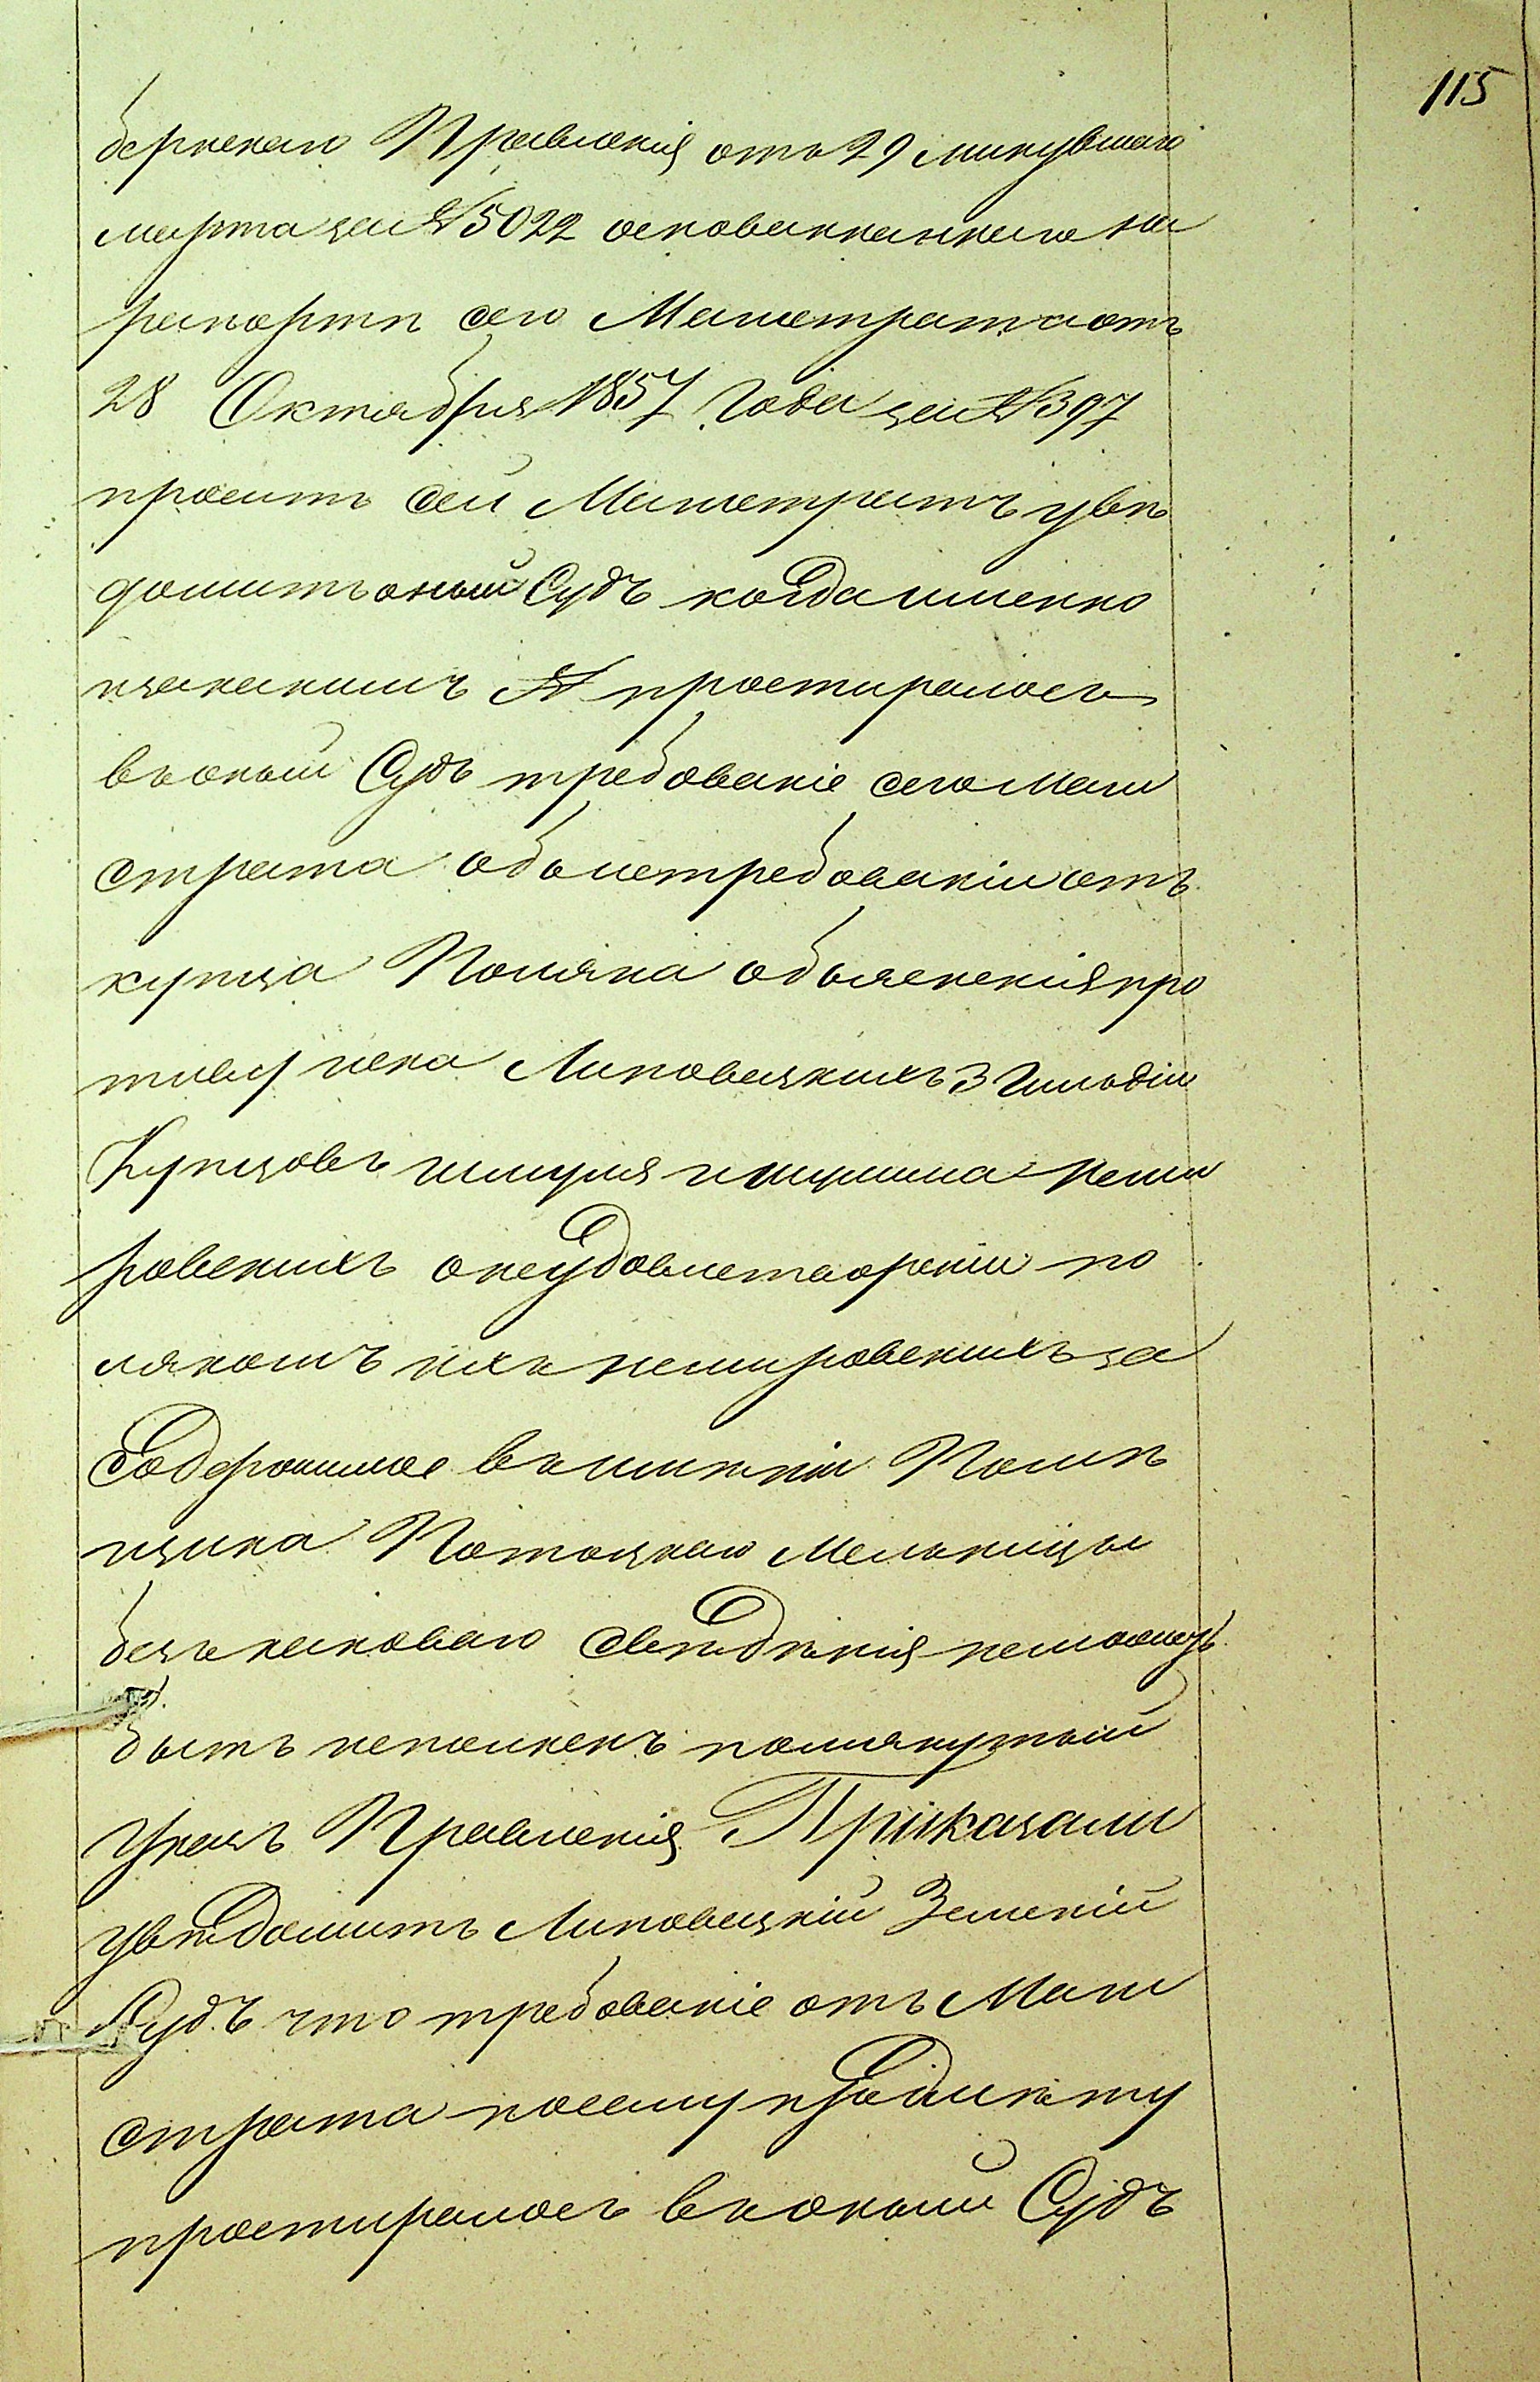 115
бернскаго Правленія отъ 29 минувшаго
марта за № 5022 основаннаго на
рапортѣ сего Магистрата отъ
28 Октября 1857 Года за № 397
проситъ сей Магистратъ увѣ
домить оный Судъ когда именно
изакакимъ № простиралось
въ оный Судъ требованіе сего Маги
страта объ истребованіи отъ
купца Поляка объясненія про
тиву иска Липовецкихъ 3 Гильдіи
Купцовъ Неми
ровскихъ о неудовлетвореніи по
лякомъ ихъ немировскихъ за
Содержимое въ имѣніи Помѣ
щика Потоцкаго Мельницы
безъ каковаго свѣдѣнія неможетъ
быть исполненъ помянутый
Указъ Правленія Приказали
увѣдомить Липовецкій Земскій
Судъ что требованіе отъ Маги
страта посему предмѣту
простиралось въ оный Судъ